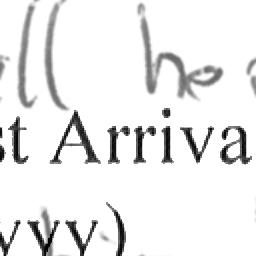 ell ho
st Arriva
yyy)